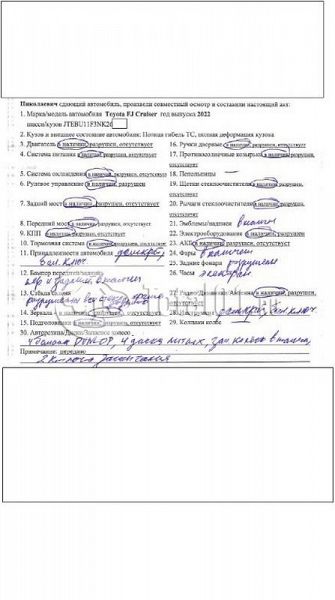 Николаевич сдающий автомобиль, произвели совместный осмотр и составили настоящий акт:
1. Марка/модель автомобиля Toyota FJ Cruiser год выпуска 2022
шасси/кузов JTEBU11F3NK26
2. Кузов и внешнее состояние автомобиля: Полная гибель ТС, полная деформация кузова
3. Двигатель в наличии, разрушен, отсутствует
16. Ручки дверные в наличии, разрушен, отсутствует
4. Система питания в наличии, разрушен, отсутствует
17. Противосолнечные козырьки в наличии, разрушен, отсутствует
5. Система охлаждения в наличии, разрушен, отсутствует
18. Пепельницы
6. Рулевое управление в наличии, разрушен
19. Щетки стеклоочистителя в наличии, разрушен, отсутствует
7. Задний мост в наличии, разрушен, отсутствует
20. Рычаги стеклоочистителя в наличии, разрушен, отсутствует
8. Передний мост в наличии, разрушен, отсутствует
21. Эмблемы/надписи в налич
9. КПП в наличии, разрушен, отсутствует
22. Электрооборудование в наличии, разрушен, отсутствует
10. Тормозная система в наличии, разрушен, отсутствует
23. АКБ в наличии, разрушен, отсутствует
11. Принадлежности автомобиля домкрат,
бал. ключ
24. Фары в наличии
25. Задние фонари разрушены
12. Бампер передний/задний
26. Часы
13. Сиденья салона
27. Радио/Динамики/Антенна в наличии, разрушен,
отсутствует
14. Зеркала в наличии, разрушен, отсутствует
28. Инструмент домкрат, бал. ключ
15. Подголовники в наличии, разрушен, отсутствует
29. Колпаки колес
30. Авторезина/Диски/Запасное колесо
DUNLOP, 4 диска литых, зап колесо в налич
Примечания: передано
2 ключа зажигания